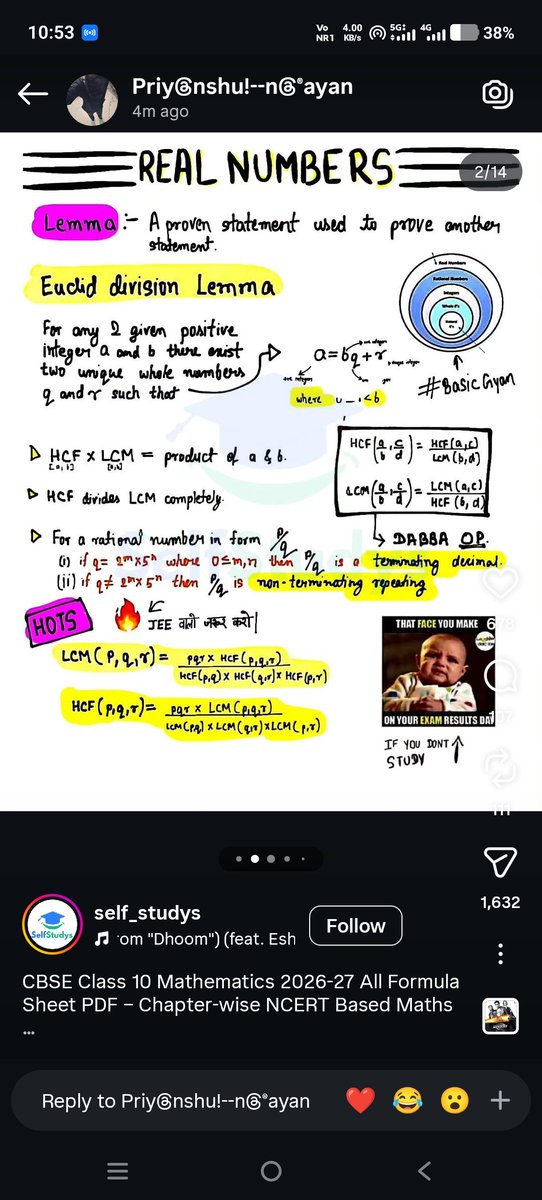 10:53
Vo NR1 4.00 KB/s 5G 4G 38%
Priy@nshu!--n@°ayan
4m ago
REAL NUMBERS
2/14
Lemma :- A proven statement used to prove another
statement.
Euclid division Lemma
Real Numbers
Rational Numbers
Integers
Whole #'s
Natural #'s
For any 2 given positive
integer a and b there exist
two unique whole numbers
q and r such that
a=bq+r
where < b
#Basic Gyan
HCF x LCM = product of a & b.
[a,b] [a,b]
HCF divides LCM completely.
HCF(a/b, c/d) = HCF(a,c)/LCM(b,d)
LCM(a/b, c/d) = LCM(a,c)/HCF(b,d)
DABBA OP.
For a rational number in form P/q
(i) if q= 2^m x 5^n where 0≤m,n then P/q is a terminating decimal.
(ii) if q≠ 2^m x 5^n then P/q is non-terminating repeating
HOTS
JEE वालो जरूर करो|
LCM(P,q,r) = pqr x HCF(p,q,r) / HCF(p,q) x HCF(q,r) x HCF(p,r)
HCF(p,q,r) = pqr x LCM(p,q,r) / LCM(p,q) x LCM(q,r) x LCM(p,r)
THAT FACE YOU MAKE
ON YOUR EXAM RESULTS DAY
IF YOU DONT
STUDY
1,632
self_studys
SelfStudys
Follow
rom "Dhoom") (feat. Esh
CBSE Class 10 Mathematics 2026-27 All Formula
Sheet PDF – Chapter-wise NCERT Based Maths
...
Reply to Priy@nshu!--n@°ayan